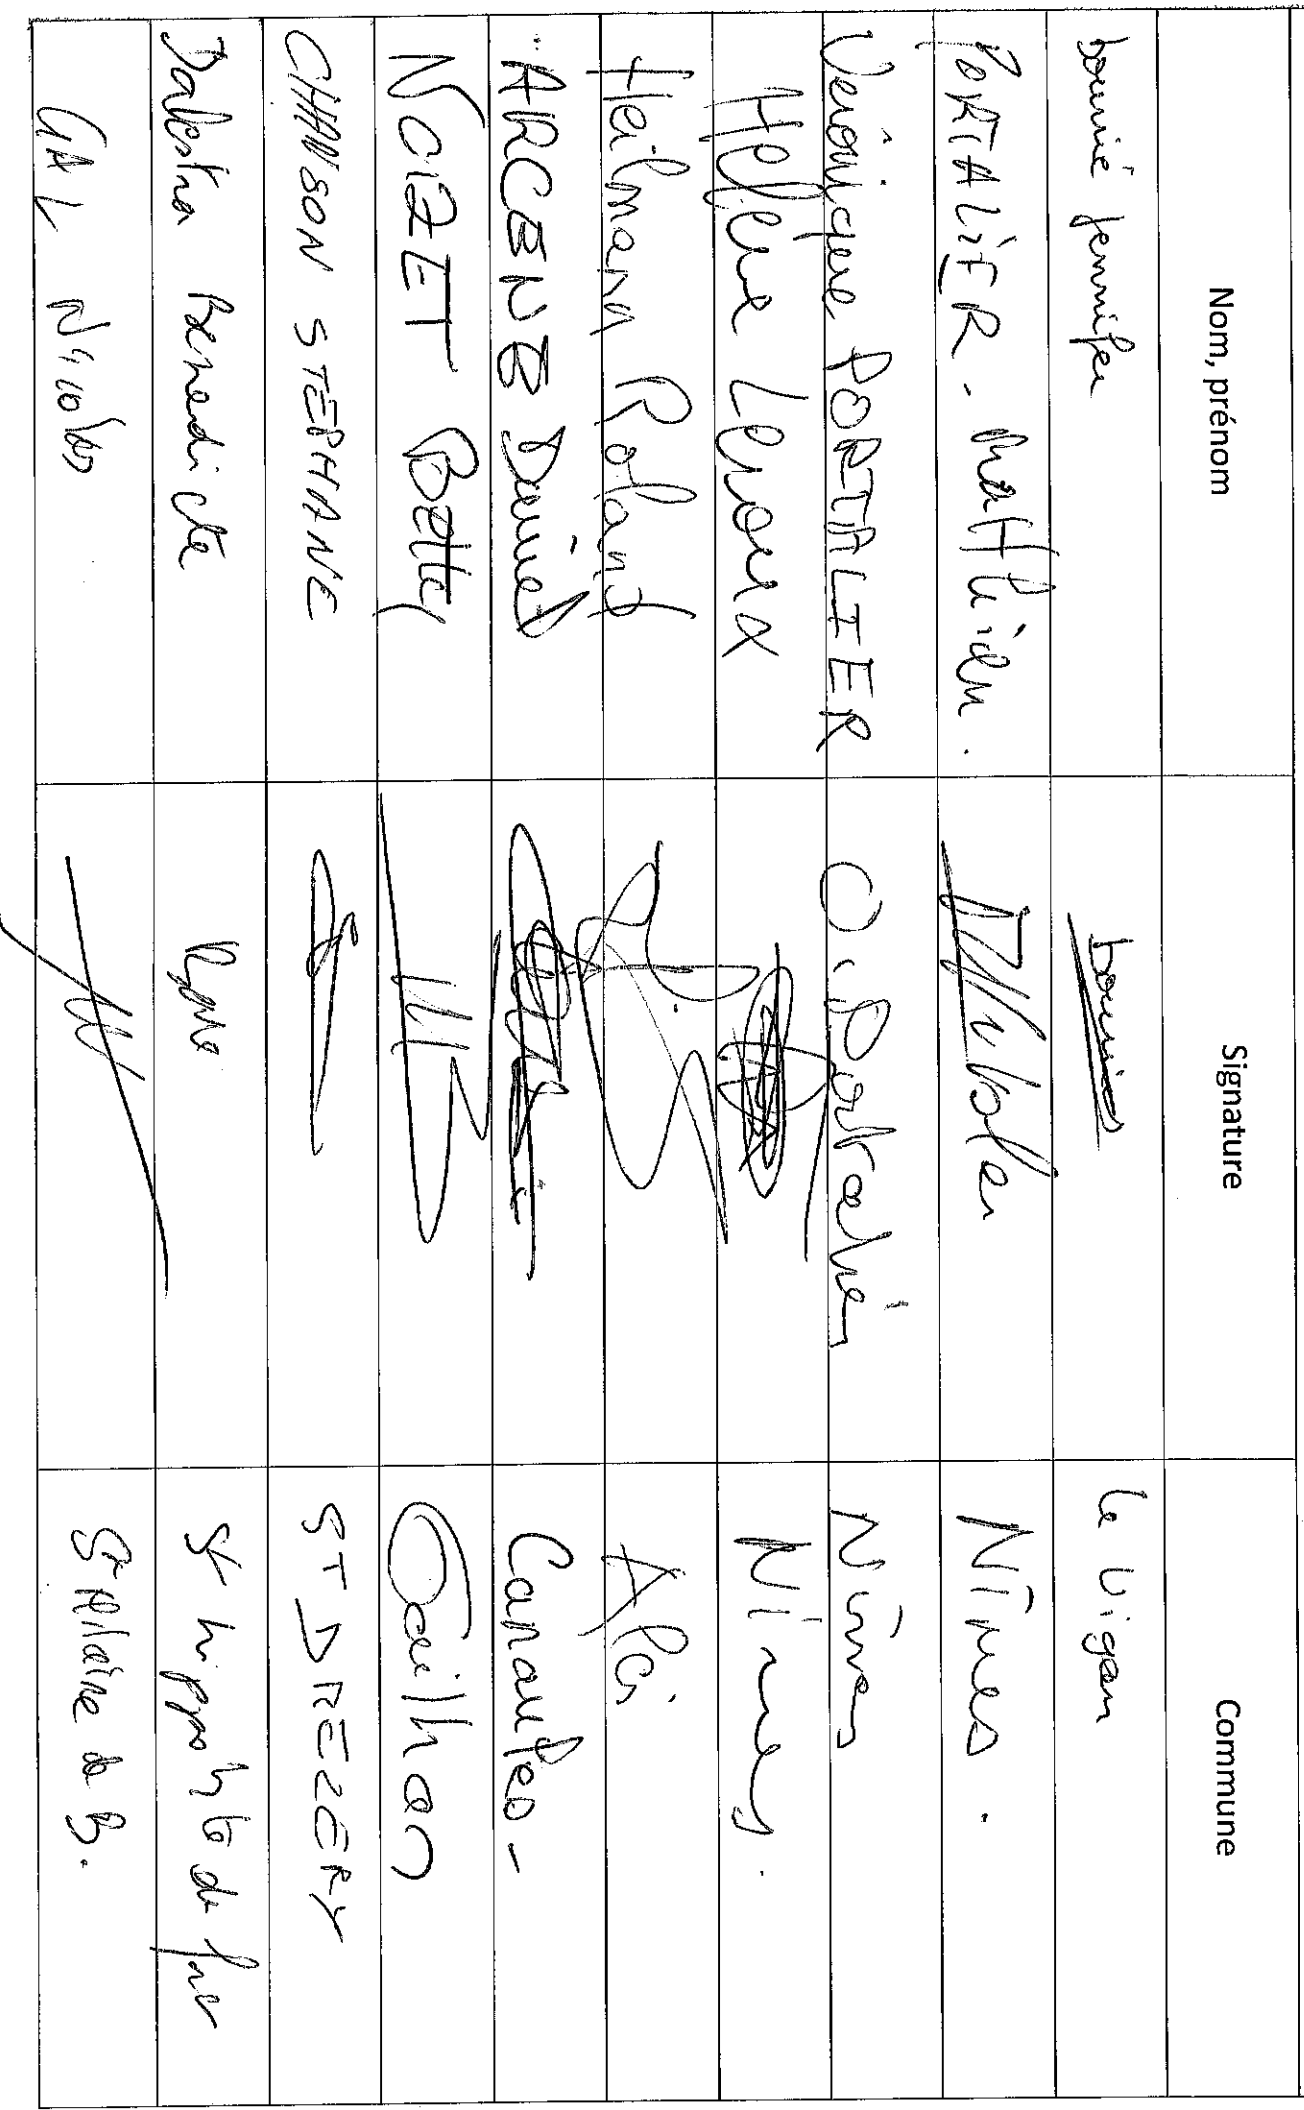 Nom, prénom Signature Commune
bounié jennifer bounié Le Vigan
PORTALIER - Matthieu. Nîmes.
Véronique PORTALIER V. Portalier Nîmes
Hélène Leroux Nîmes.
Heilmann Roland
ARCENE Daniel Canaules -
NOIZET Betty Gailhan
CHANSON STÉPHANE ST DREZERY
Dalestra Benedicte St hippolyte du fort
GAL Nicolas St Hilaire de B.